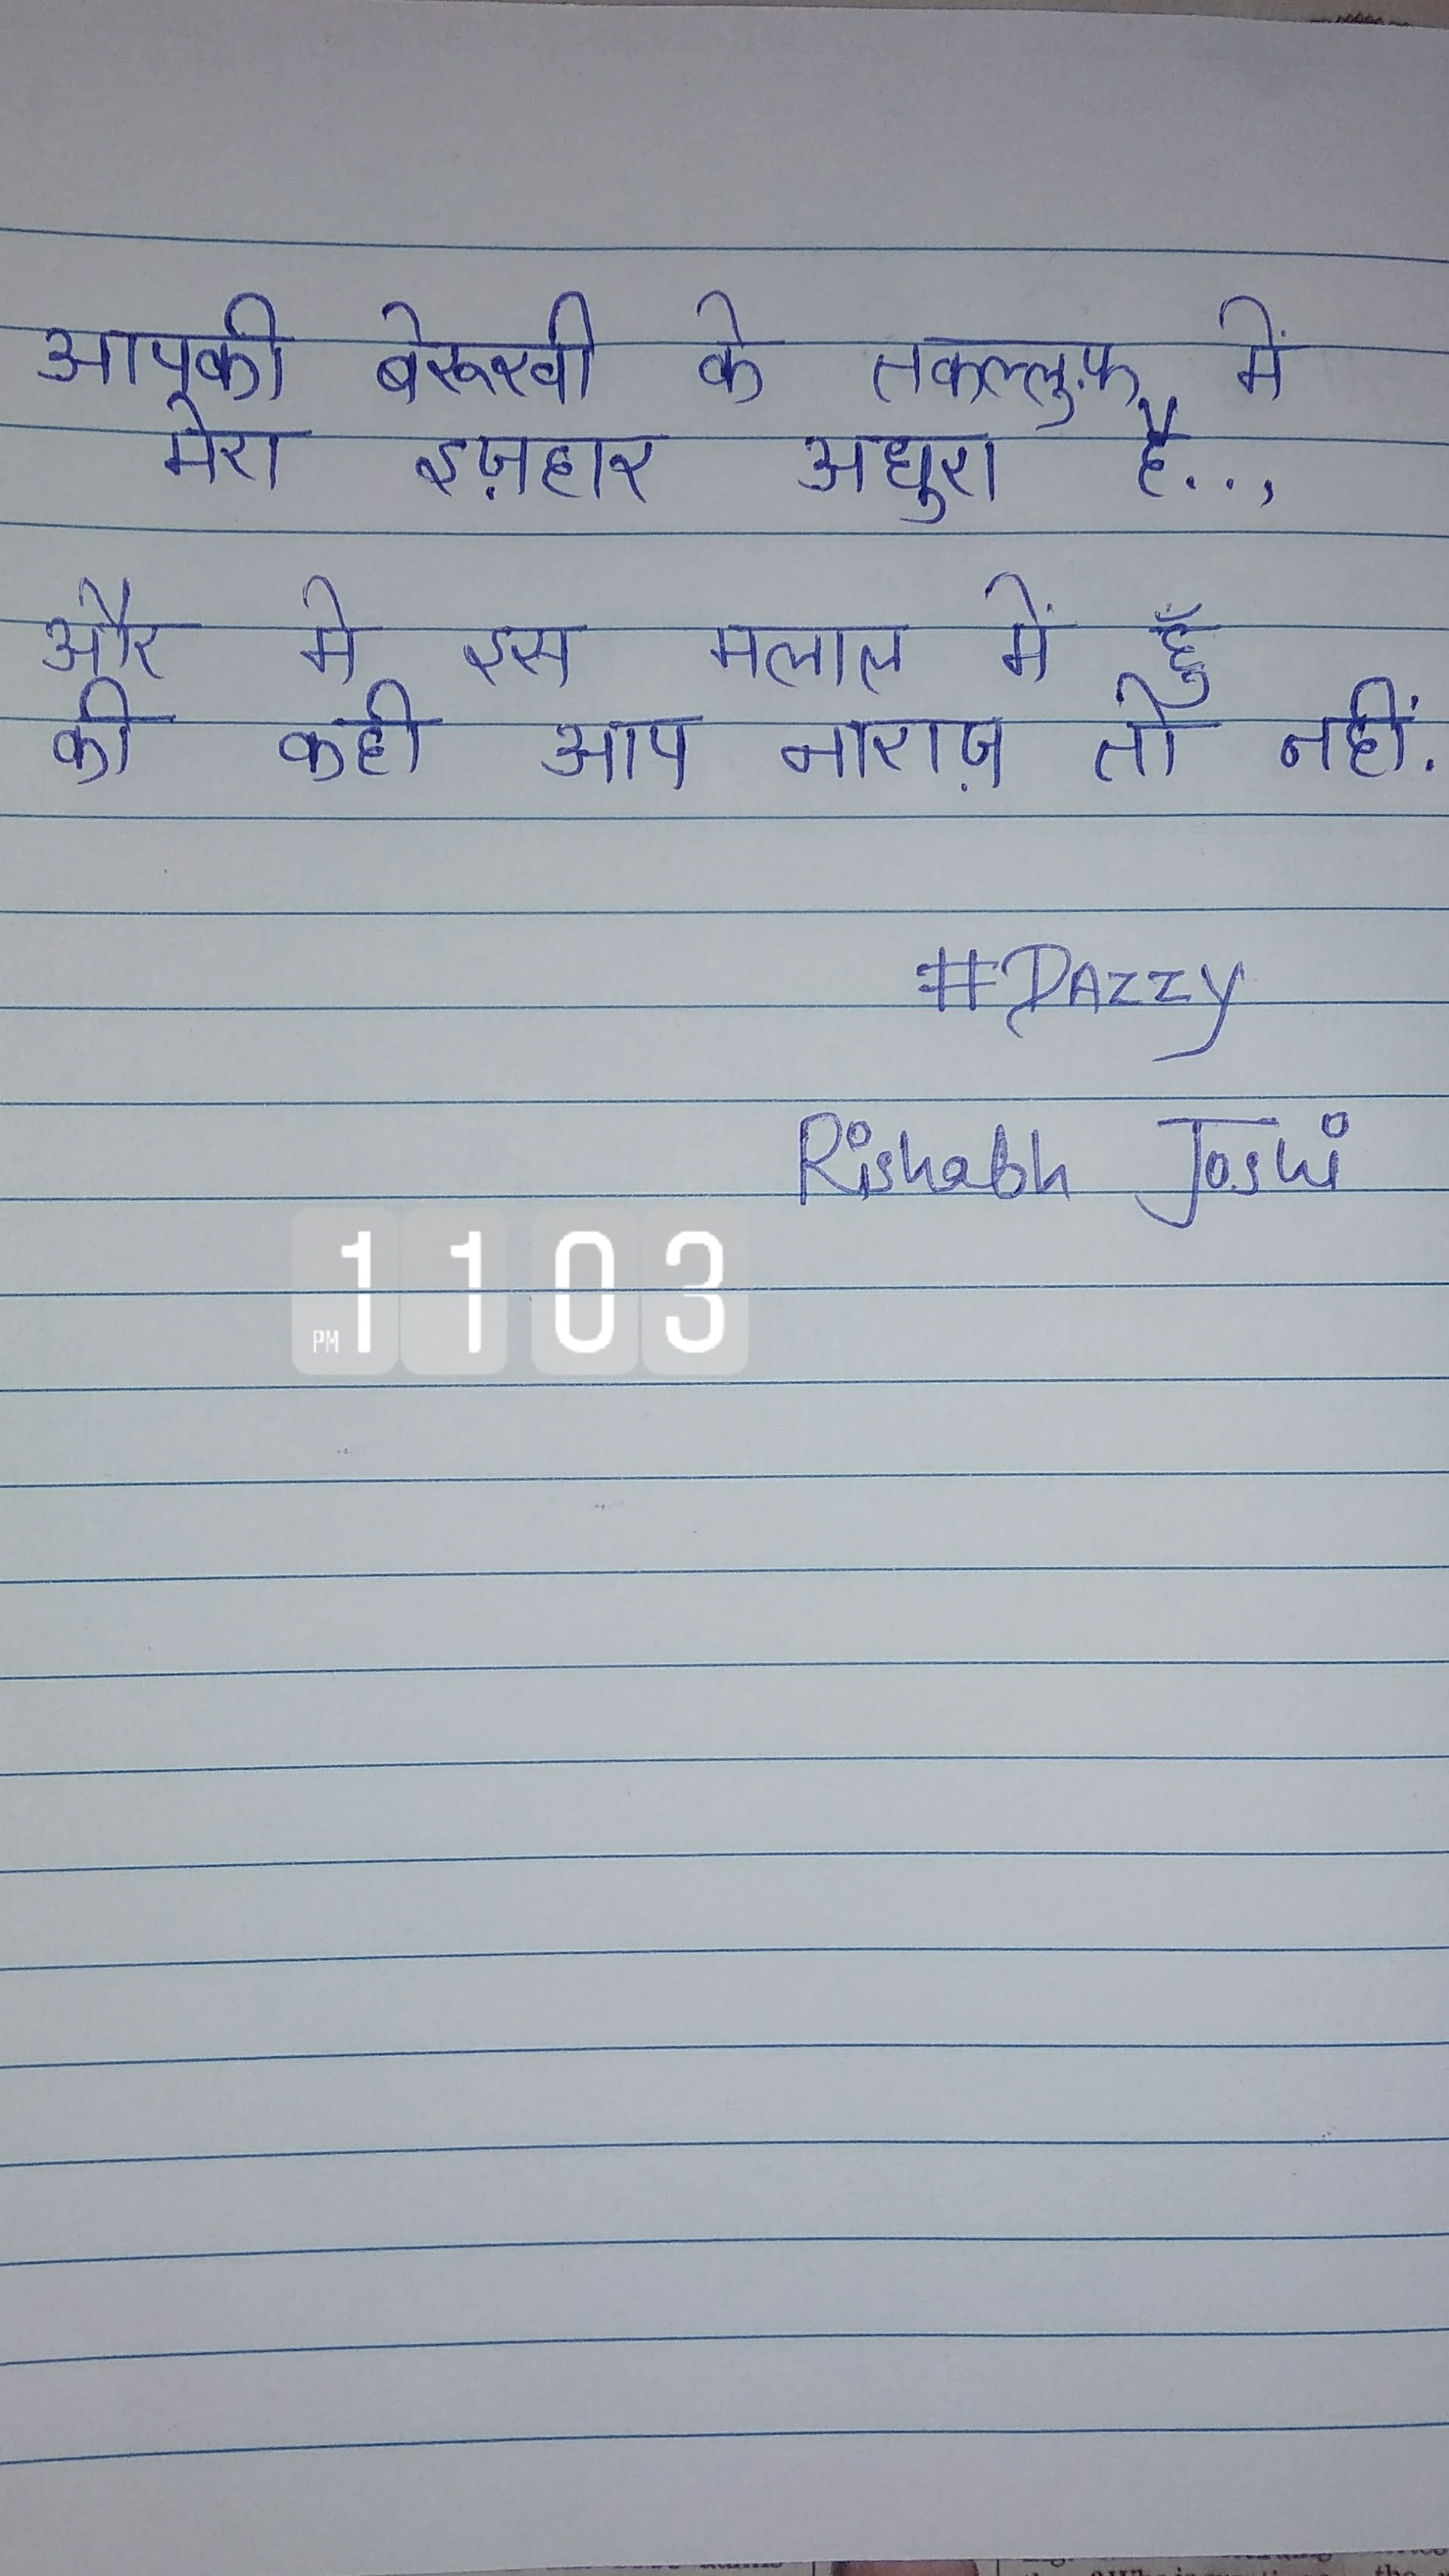 आपकी बेरूखी के तकल्लुफ़ में
मेरा इज़हार अधुरा है..,
और मे इस मलाल में हुँ
की कही आप नाराज़ तो नहीं.
#DAZZY
Rishabh Joshi
PM 11 03